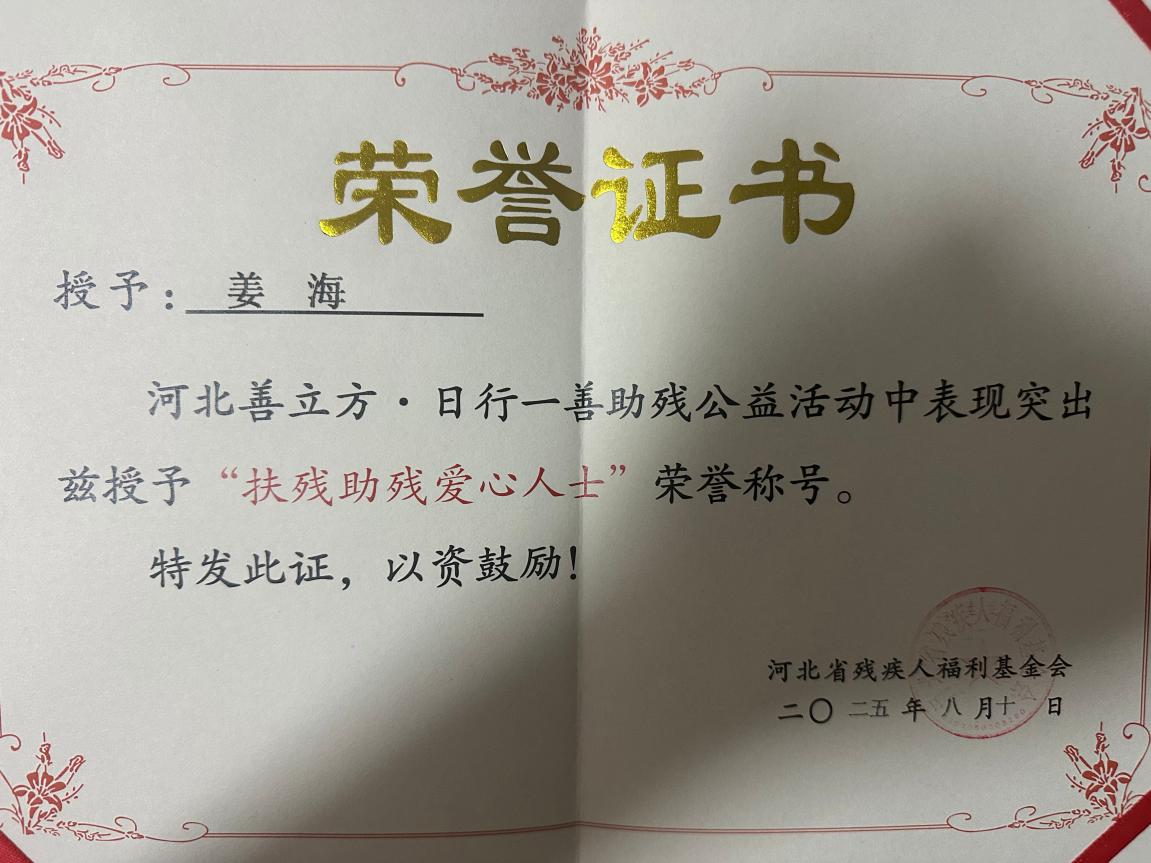 荣誉证书
授予：姜 海
河北善立方·日行一善助残公益活动中表现突出
兹授予“扶残助残爱心人士”荣誉称号。
特发此证，以资鼓励！
河北省残疾人福利基金会
二〇二五年八月十 日